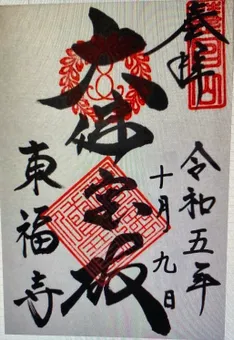 奉拝
令和五年
十月九日
大佛宝殿
東福寺